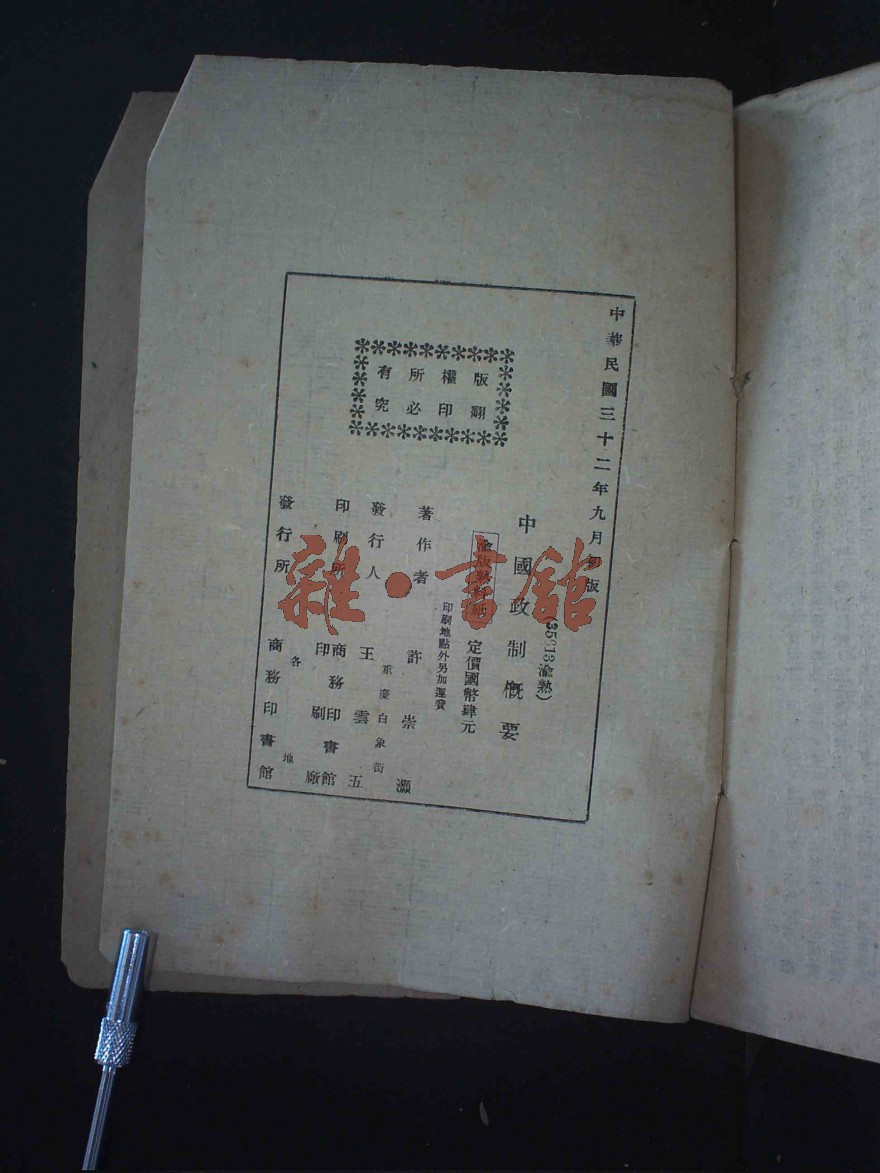 中華民國三十二年九月初版
版權所有
翻印必究
中國政制概要
(35213渝熱)
渝版熱料紙
定價國幣肆元
印刷地點外另加運費
著作者 許崇灝
重慶白象街
發行人 王雲五
印刷所 商務印書館印刷廠
各地
發行所 商務印書館
雜·書館